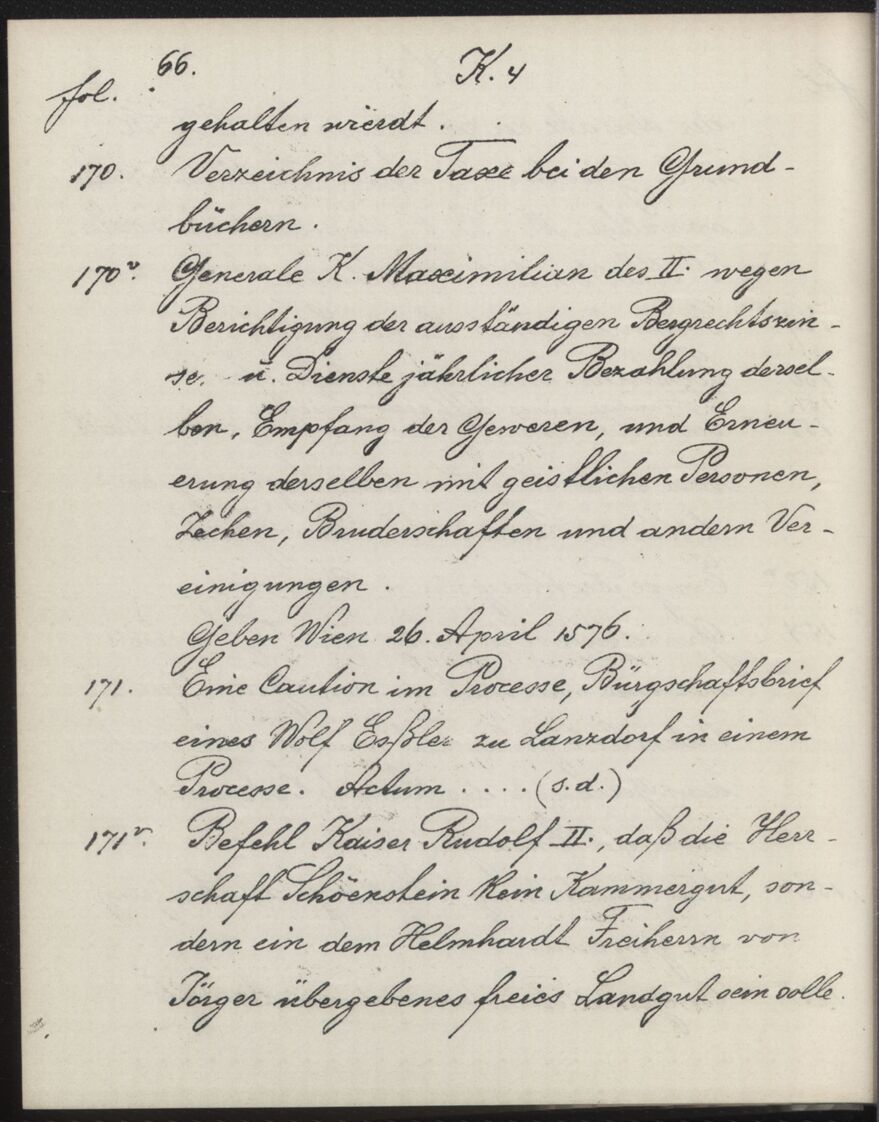 66. K. 4
fol. gehalten wierdt.
170. Verzeichnis der Taxe bei den Grund-
büchern.
170v. Generale K. Maximilian des II. wegen
Berichtigung der ausständigen Bergrechtszin-
se. u. Dienste jährlicher Bezahlung dersel-
ben, Empfang der Geweren, und Erneu-
erung derselben mit geistlichen Personen,
Zechen, Bruderschaften und andern Ver-
einigungen.
Geben Wien 26. April 1576.
171. Eine Caution im Processe, Bürgschaftsbrief
eines Wolf Esßler zu Lanzdorf in einem
Processe. Actum .... (s.d.)
171v. Befehl Kaiser Rudolf II., daß die Herr-
schaft Schöenstein kein Kammergut, son-
dern ein dem Helmhardt Freiherrn von
Jörger übergebenes freies Landgut sein solle.